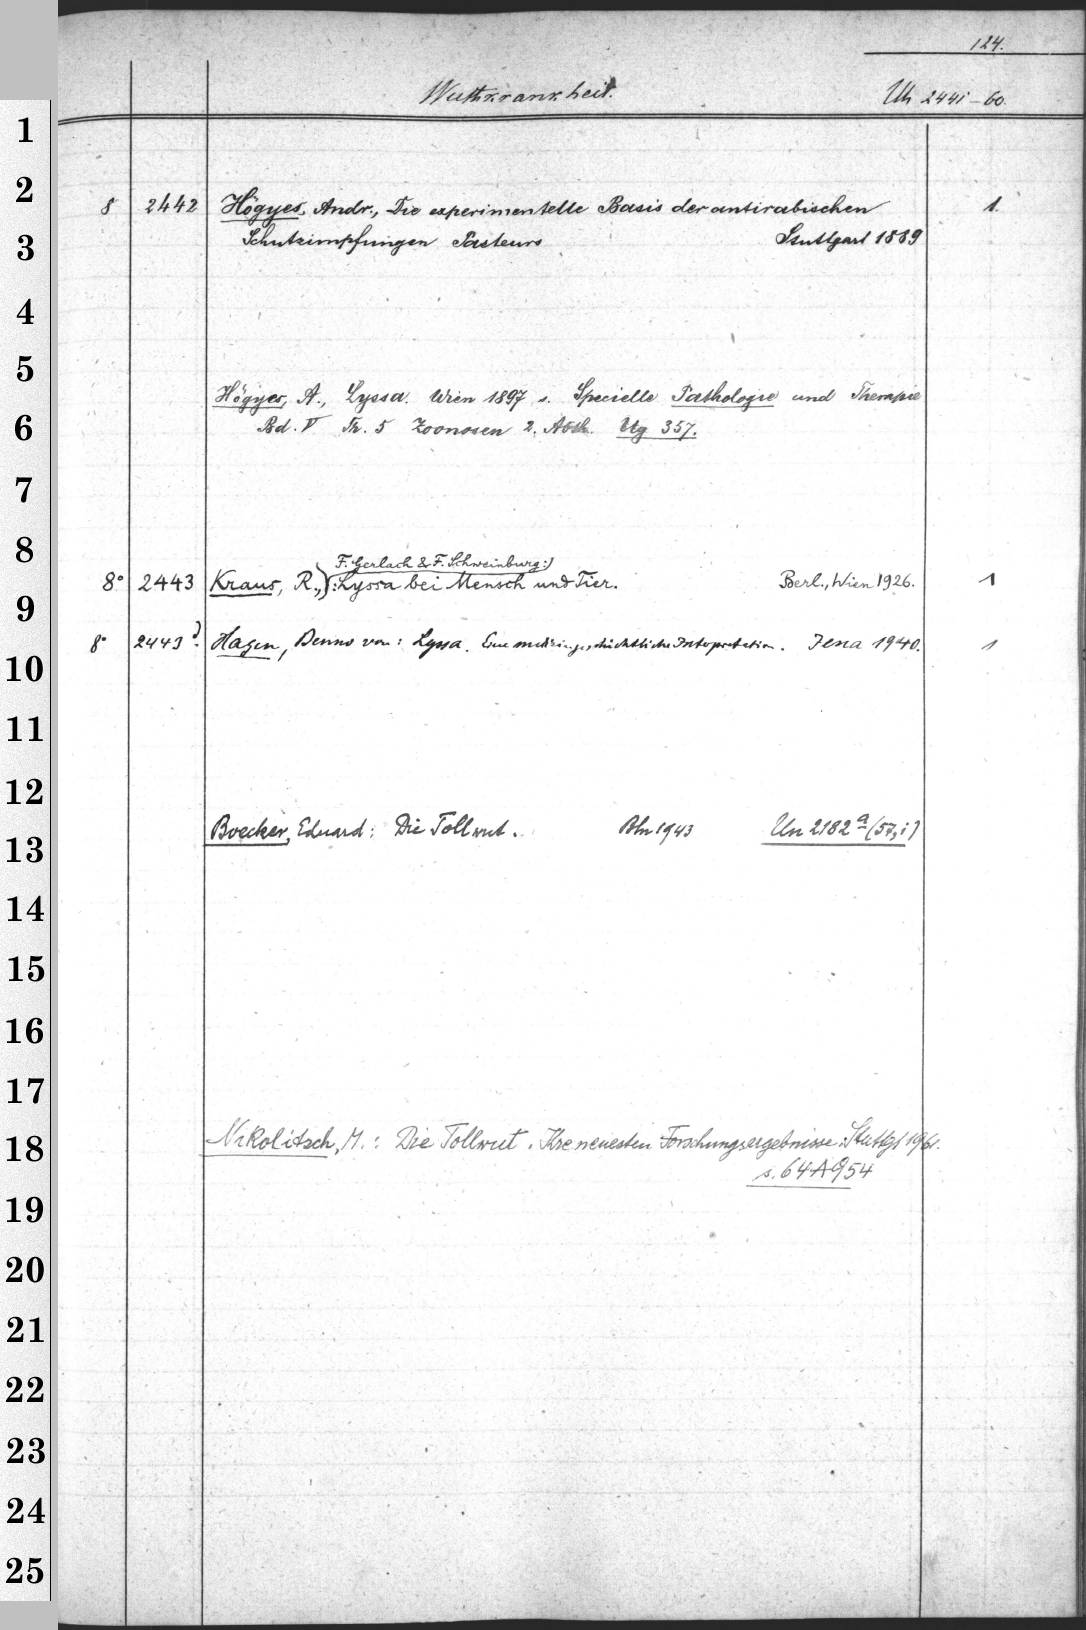 124.
Wuthkrankheit. Uh 2441-60.
8 2442 Högyes, Andr., Die experimentelle Basis der antirabischen 1.
Schutzimpfungen Pasteurs Stuttgart 1889
Högyes, A., Lyssa. Wien 1897 s. Specielle Pathologie und Therapie
Bd. V Th. 5 Zoonosen 2. Abth. Ug 357.
F. Gerlach & F. Schweinburg:)
8° 2443 Kraus, R.,): Lyssa bei Mensch und Tier. Berl., Wien 1926. 1
8° 2443 Hagen, Benno von: Lyssa. Eine medizingeschichtliche Interpretation. Jena 1940. 1
Boecker, Eduard: Die Tollwut. Bln 1943 Un 2182 a (57,i)
Nikolitsch, M.: Die Tollwut. Ihre neuesten Forschungsergebnisse. Stuttgt 1961.
s. 64 A 954
1
2
3
4
5
6
7
8
9
10
11
12
13
14
15
16
17
18
19
20
21
22
23
24
25